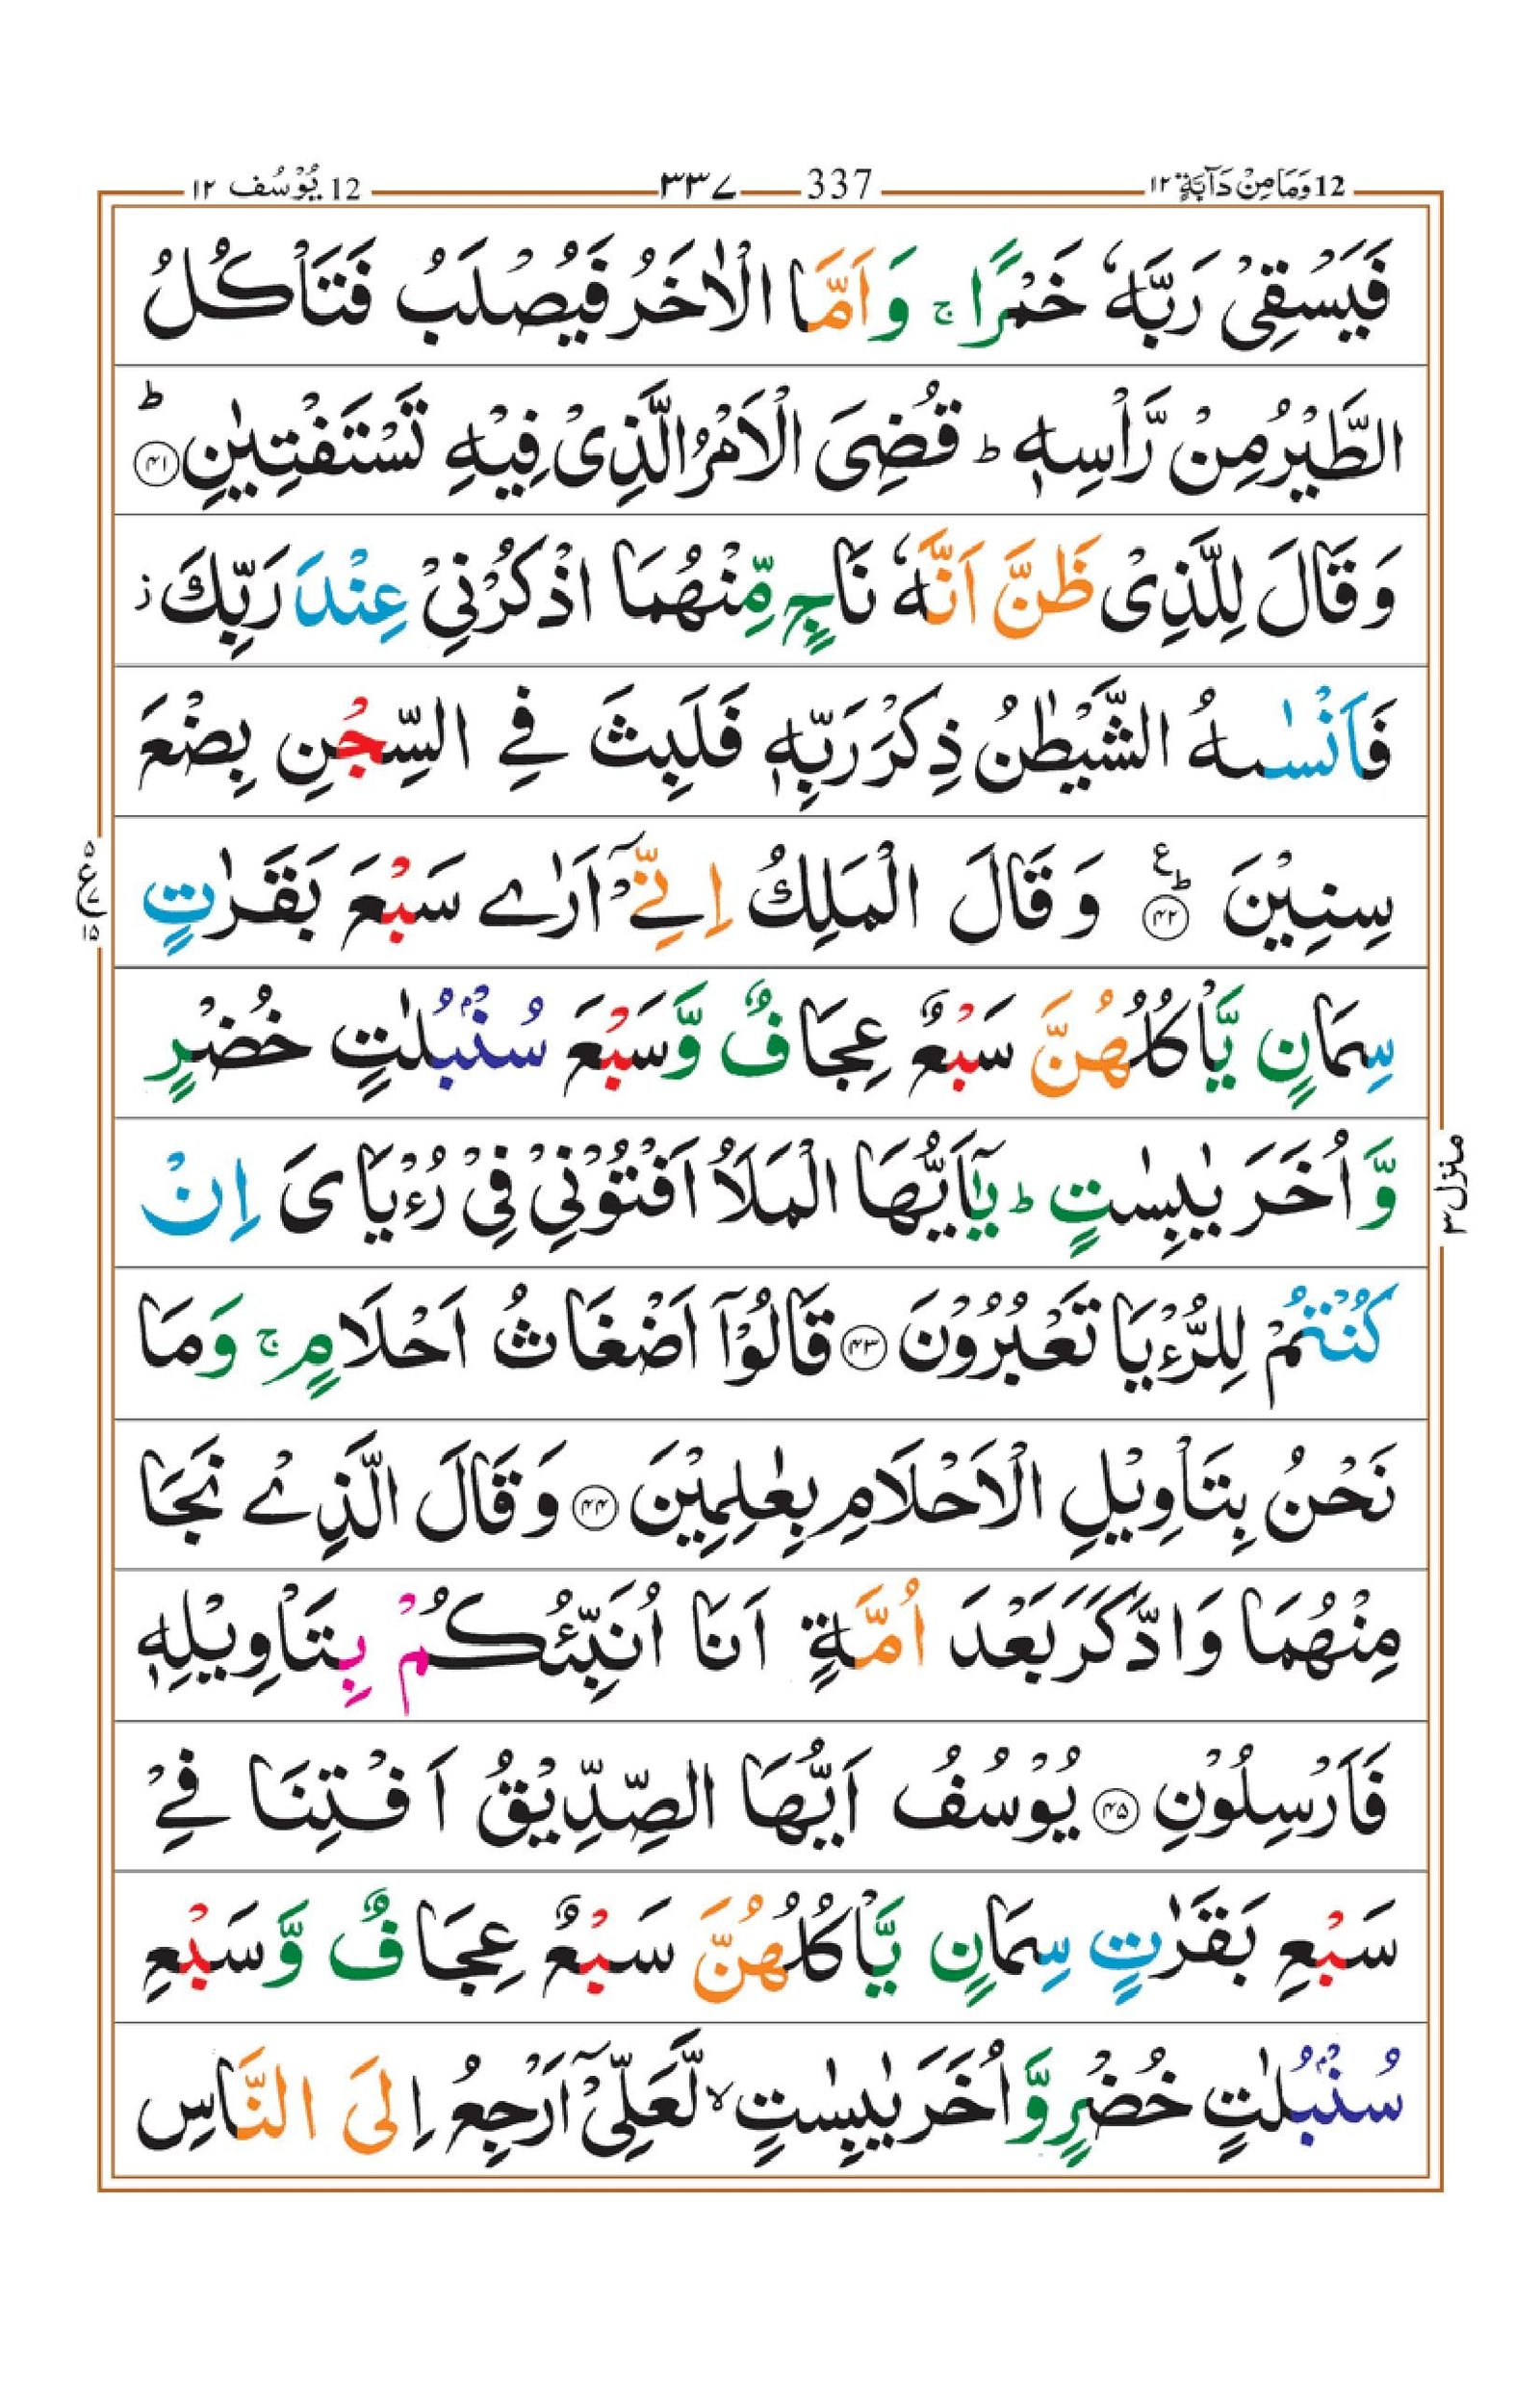 12 وَمَا مِنْ دَآبَّةٍ ۱۲ 337 ۳۳۷ 12 يُوْسُف ۱۲
فَيَسْقِىْ رَبَّهٗ خَمْرًا ۚ وَاَمَّا الْاٰخَرُ فَيُصْلَبُ فَتَاْكُلُ
الطَّيْرُ مِنْ رَّاْسِهٖ ؕ قُضِىَ الْاَمْرُ الَّذِىْ فِيْهِ تَسْتَفْتِيٰنِ ؕ ۴۱
وَقَالَ لِلَّذِىْ ظَنَّ اَنَّهٗ نَاجٍ مِّنْهُمَا اذْكُرْنِىْ عِنْدَ رَبِّكَ ز
فَاَنْسٰىهُ الشَّيْطٰنُ ذِكْرَ رَبِّهٖ فَلَبِثَ فِے السِّجْنِ بِضْعَ
سِنِيْنَ ؕ ۴۲ ع وَقَالَ الْمَلِكُ اِنِّےْۤ اَرٰے سَبْعَ بَقَرٰتٍ
سِمَانٍ يَّاْكُلُهُنَّ سَبْعٌ عِجَافٌ وَّسَبْعَ سُنْۢبُلٰتٍ خُضْرٍ
وَّاُخَرَ يٰبِسٰتٍ ؕ يٰۤاَيُّهَا الْمَلَاُ اَفْتُوْنِىْ فِىْ رُءْيَاىَ اِنْ
كُنْتُمْ لِلرُّءْيَا تَعْبُرُوْنَ ۴۳ قَالُوْۤا اَضْغَاثُ اَحْلَامٍ ۚ وَمَا
نَحْنُ بِتَاْوِيْلِ الْاَحْلَامِ بِعٰلِمِيْنَ ۴۴ وَقَالَ الَّذِےْ نَجَا
مِنْهُمَا وَادَّكَرَ بَعْدَ اُمَّةٍ اَنَا اُنَبِّئُكُمْ بِتَاْوِيْلِهٖ
فَاَرْسِلُوْنِ ۴۵ يُوْسُفُ اَيُّهَا الصِّدِّيْقُ اَفْتِنَا فِےْ
سَبْعِ بَقَرٰتٍ سِمَانٍ يَّاْكُلُهُنَّ سَبْعٌ عِجَافٌ وَّسَبْعِ
سُنْۢبُلٰتٍ خُضْرٍ وَّاُخَرَ يٰبِسٰتٍ ۙ لَّعَلِّىْۤ اَرْجِعُ اِلَى النَّاسِ
۵
ع ۷
۱۵
منزل ۳